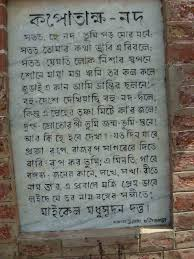 কপোতাক্ষ-নদ
সতত, হে নদ, তুমি পড় মোর মনে।
সতত তোমার কথা ভাবি এ বিরলে;
সতত যেমতি লোক নিশার স্বপনে
শোনে মায়া যন্ত্র ধ্বনি তব কলকলে
জুড়াই এ কান আমি ভ্রান্তির ছলনে।
বহু-দেশে দেখিয়াছি বহু-নদ-দলে,
কিন্তু এ স্নেহের তৃষ্ণা মিটে কার জলে?
দুগ্ধ-স্রোতোরূপী তুমি জন্ম-ভূমি-স্তনে।
আর কি হে হবে দেখা? যত দিন যাবে
প্রজা রূপে রাজরূপ সাগরেরে দিতে
বারি-রূপ কর তুমি; এ মিনতি, গাবে
বঙ্গজ জনের কানে, সখে, সখা-রীতে
নাম তার, এ প্রবাসে মজি প্রেম-ভাবে
লইছে যে তব নাম বঙ্গের সঙ্গীতে।
মাইকেল মধুসূদন দত্ত।